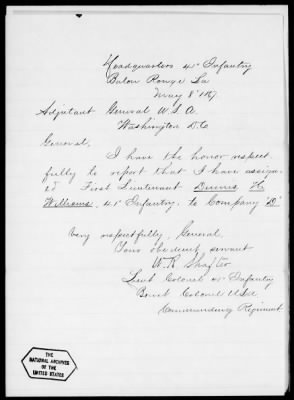 Headquarters 41st Infantry
Baton Rouge La
May 8th 1867.
Adjutant General U.S.A.
Washington D.C.
General,
I have the honor respect
fully to report that I have assign
ed First Lieutenant Dennis H.
Williams, 41st Infantry, to Company "D".
Very respectfully, General,
Your obedient servant
W. R. Shafter
Lieut Colonel 41st Infantry
Brevet Colonel U.S.A.
Commanding Regiment.
THE
NATIONAL ARCHIVES
OF THE
UNITED STATES